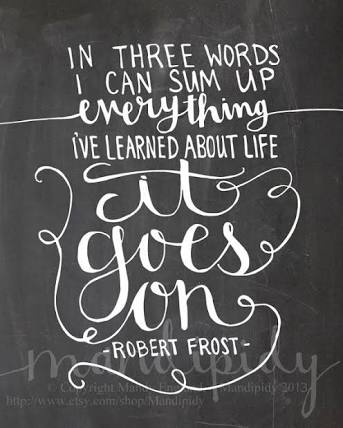 IN THREE WORDS
I CAN SUM UP
everything
I'VE LEARNED ABOUT LIFE
it
goes
on
-ROBERT FROST-
mandipidy
© Copyright Mandipidy 2013
http://www.etsy.com/shop/Mandipidy